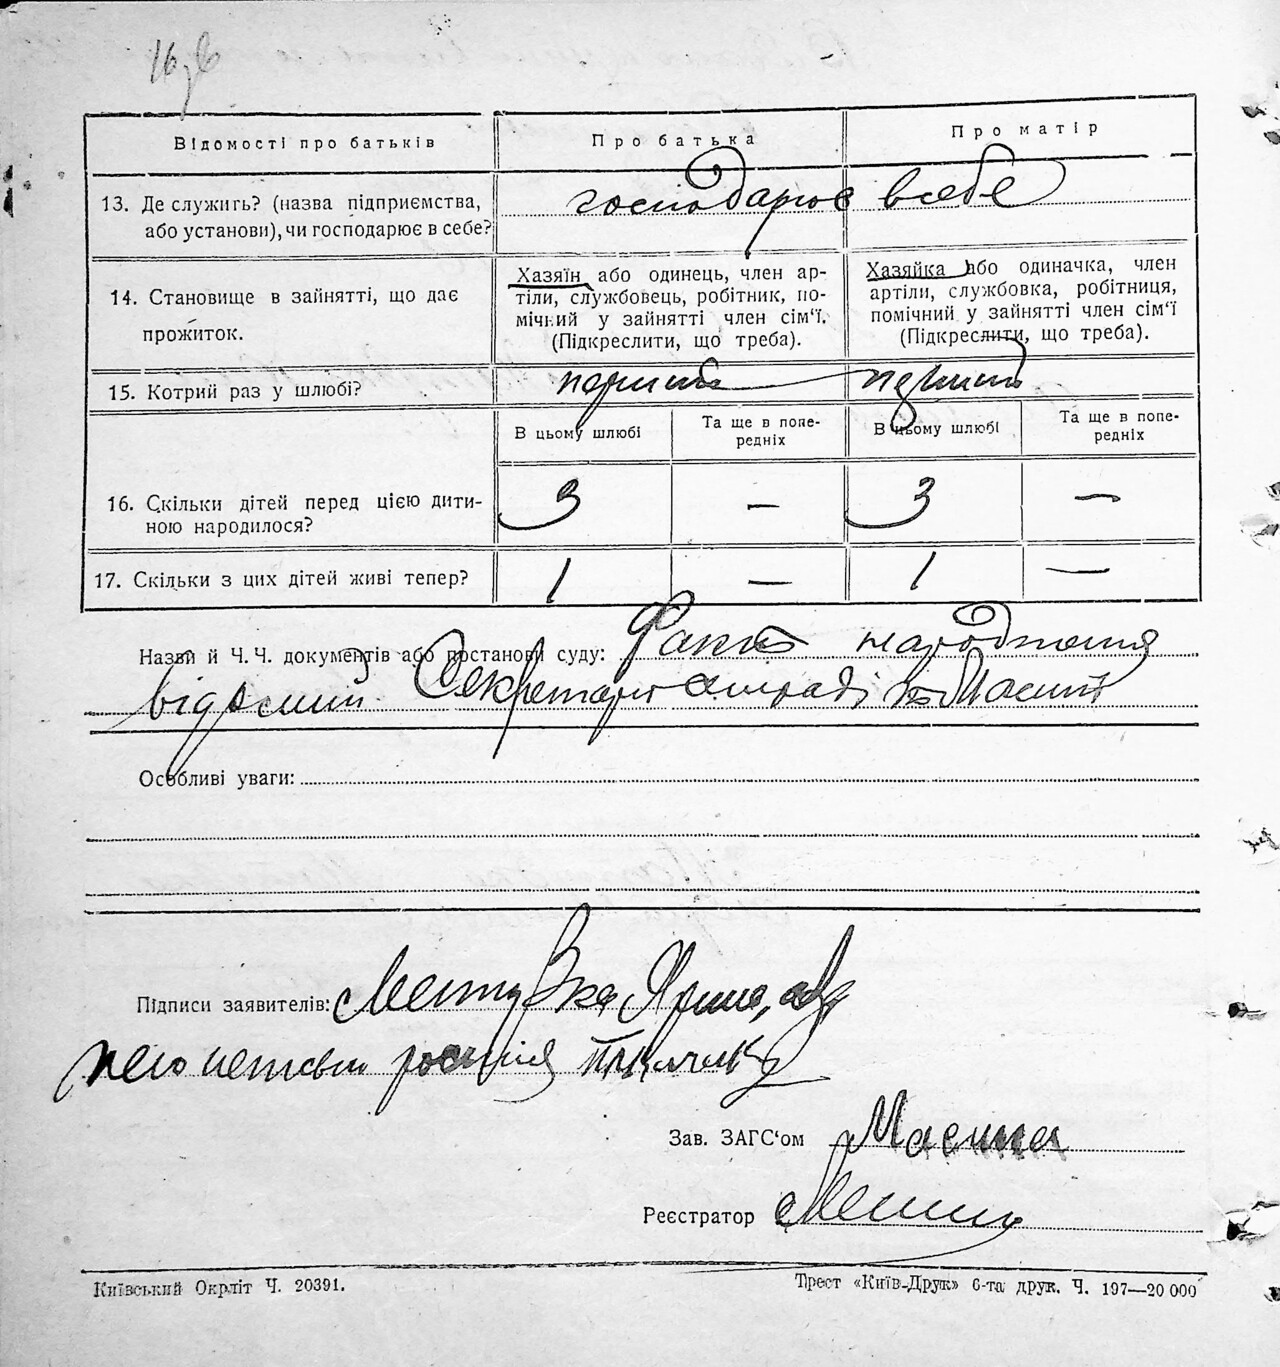 16
Відомості про батьків
Про батька
Про матір
13. Де служить? (назва підприємства,
або установи), чи господарює в себе?
господарює в себе
14. Становище в зайнятті, що дає
прожиток.
Хазяїн або одинець, член ар-
тіли, службовець, робітник, по-
мічний у зайнятті член сім‘ї.
(Підкреслити, що треба).
Хазяйка або одиначка, член
артіли, службовка, робітниця,
помічний у зайнятті член сім‘ї
(Підкреслити, що треба).
15. Котрий раз у шлюбі?
перший
перший
В цьому шлюбі
Та ще в попе-
редніх
В цьому шлюбі
Та ще в попе-
редніх
16. Скільки дітей перед цією дити-
ною народилося?
3 — 3 —
17. Скільки з цих дітей живі тепер?
1 — 1 —
Назви й Ч. Ч. документів або постанови суду: Факт народження
відомий Секретарю
Особливі уваги:
Підписи заявителів:
Зав. ЗАГС‘ом
Реєстратор
Київський Окрліт Ч. 20391.
Трест «Київ-Друк» 6-та друк. Ч. 197—20 000